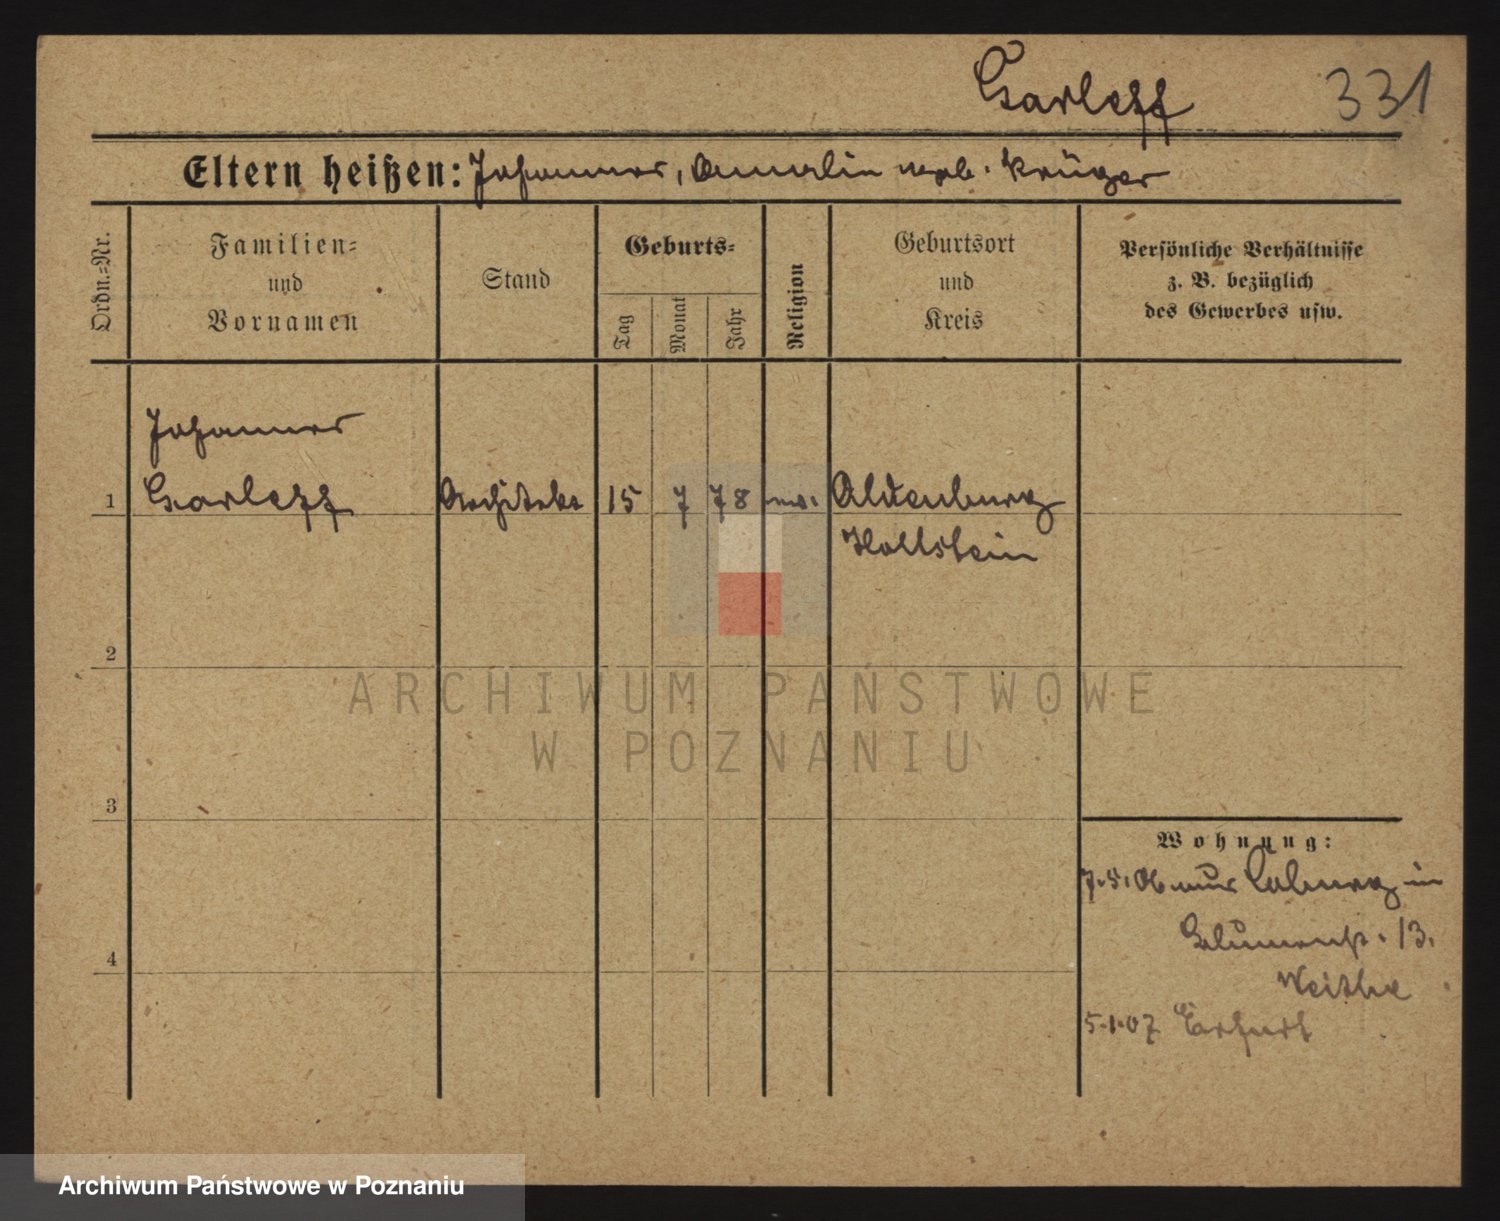 Garleff 331
Eltern heißen: Johannes, Amalie geb. Krüger
Ordn.-Nr.
Familien-
und
Vornamen
Stand
Geburts-
Tag
Monat
Jahr
Religion
Geburtsort
und
Kreis
Persönliche Verhältnisse
z. B. bezüglich
des Gewerbes usw.
Johannes
1 Garleff Architekt 15 7 78 ev. Oldenburg
Hollstein
2
ARCHIWUM PAŃSTWOWE
W POZNANIU
3
Wohnung:
7.5.06 aus Coburg in
Blumenst. 13.
4
5.1.07 Erfurt
Archiwum Państwowe w Poznaniu